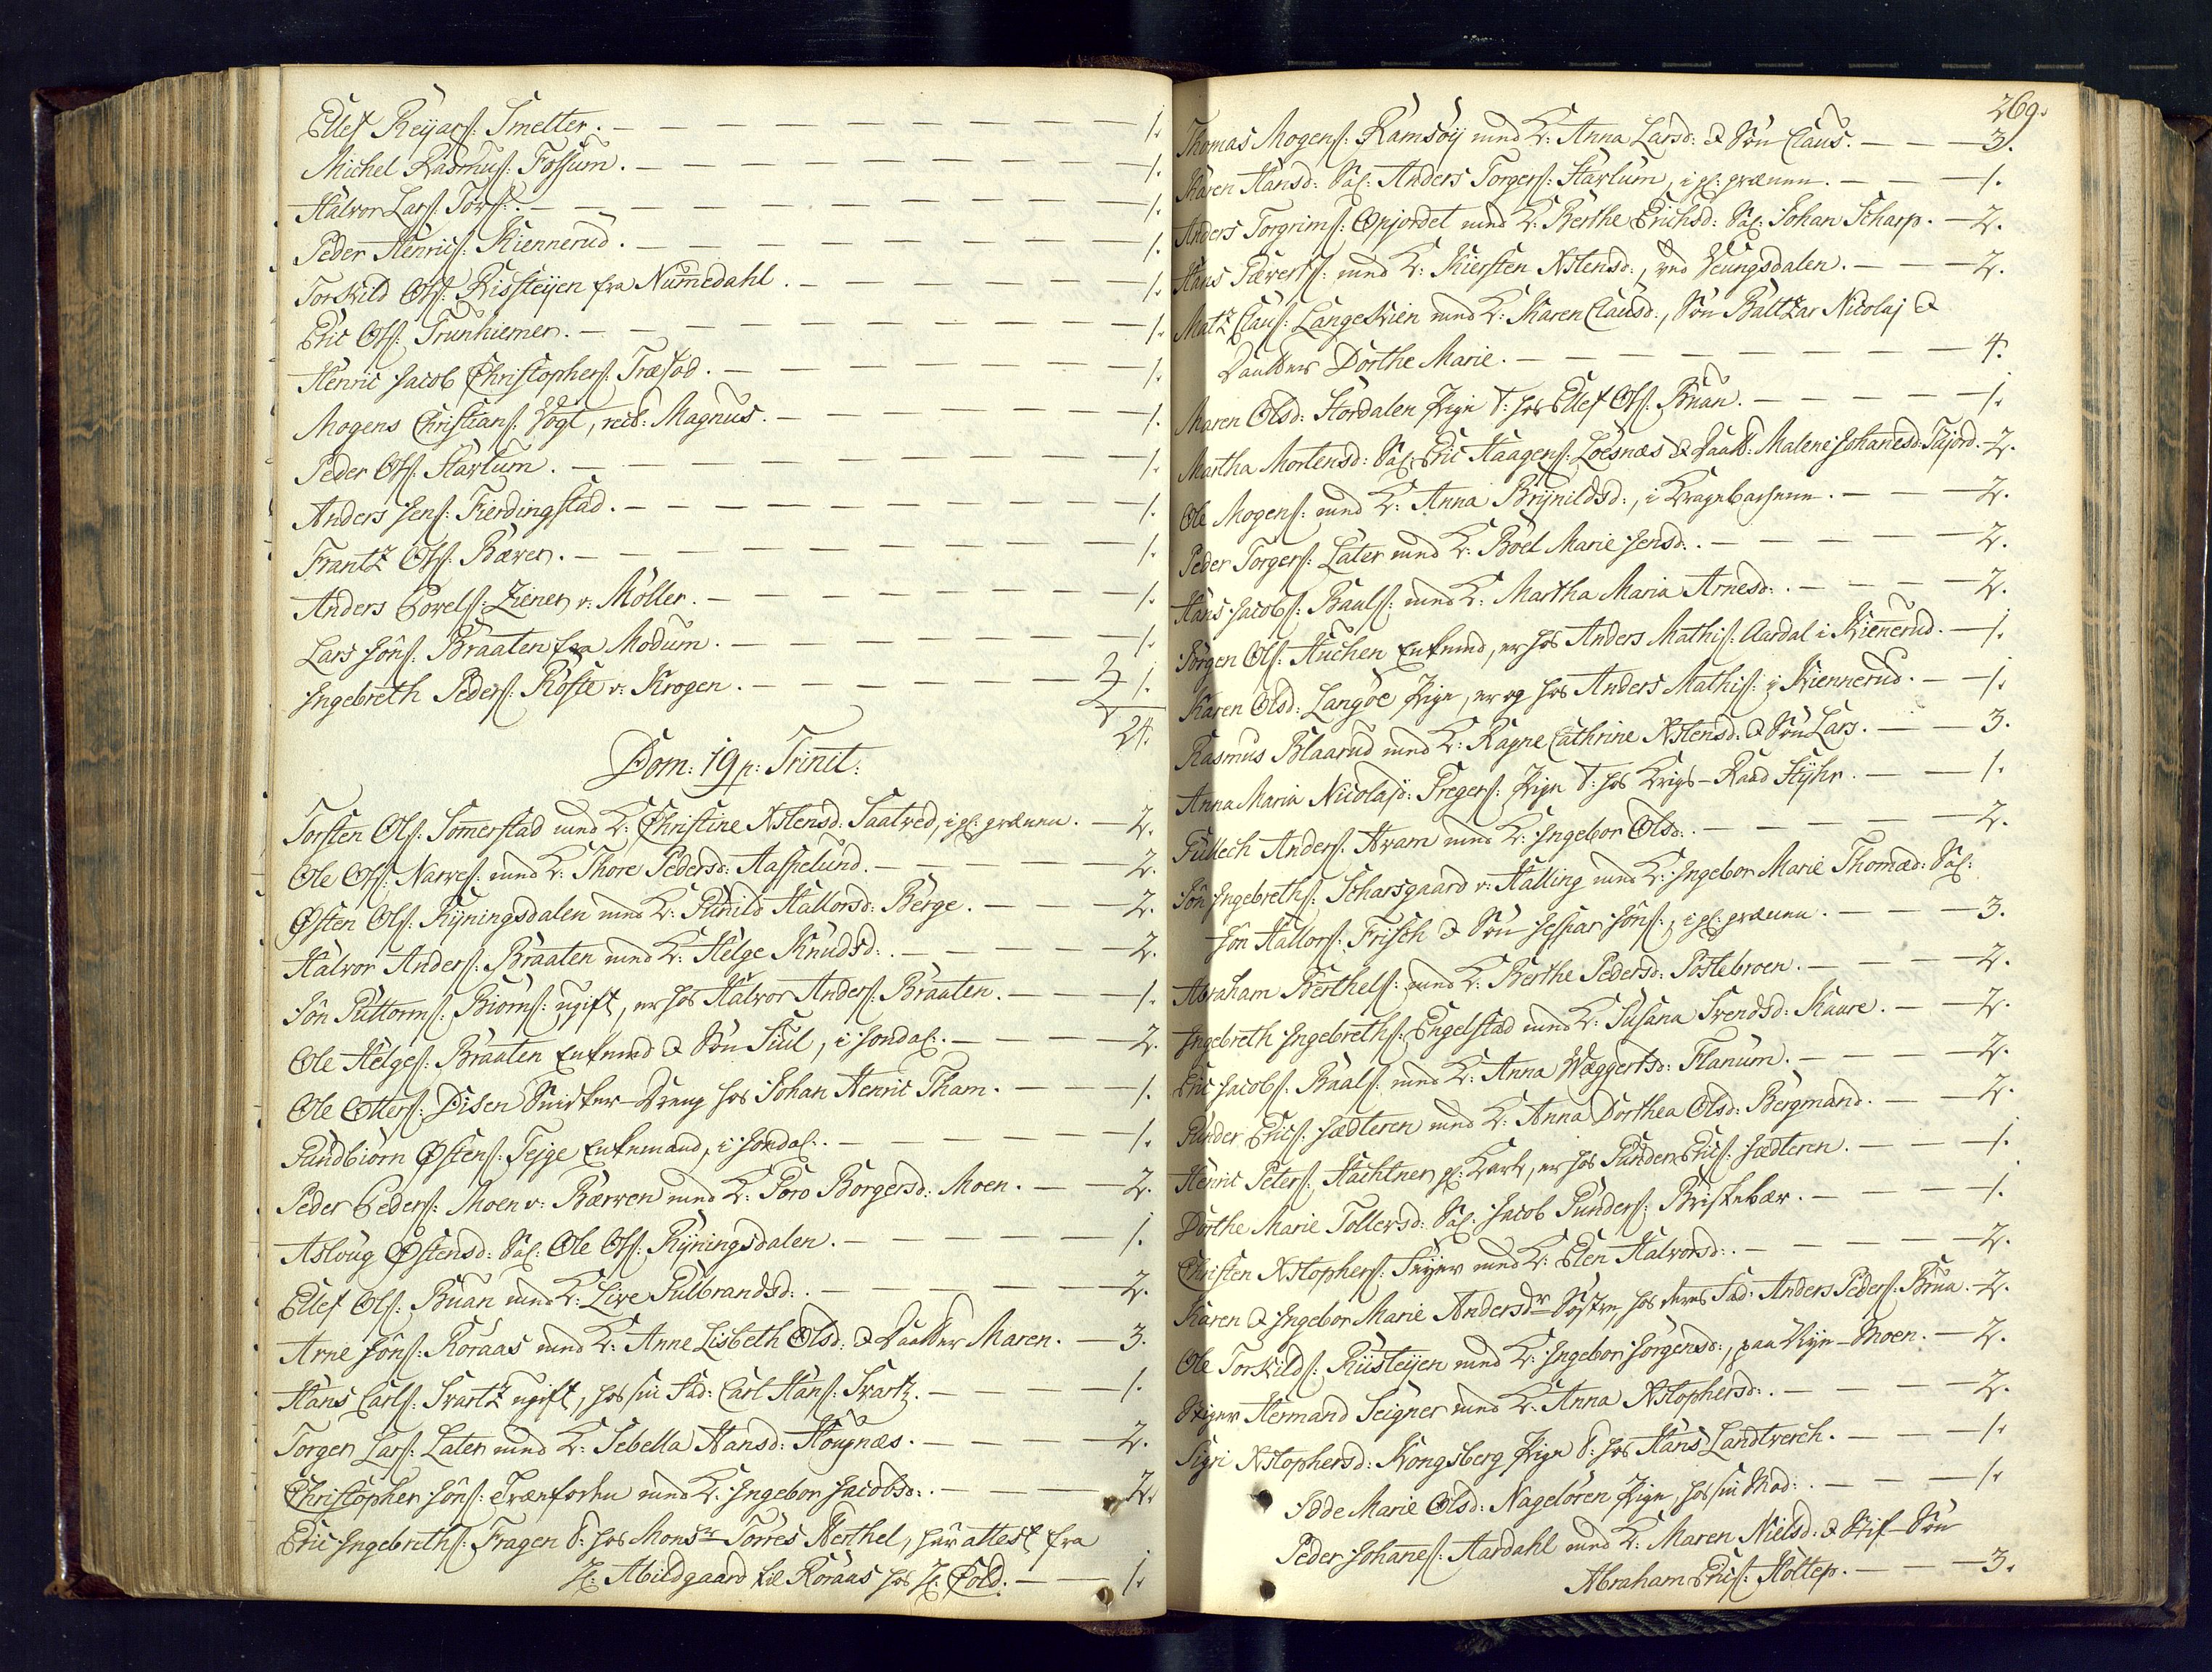 Ellef Reijars: Smelter. 1.
Michel Rasmus: Fossum. 1.
Halvor Lars: Törs:. 1.
Peder Henrics: Kiennerud. 1.
Torkild Ols: Risteijen fra Num̄edahl. 1.
Eric Ols: Trunhiemer. 1.
Henric Jacob Christophers: Træfod. 1.
Mogens Christians: Vogt, rect: Magnus. 1.
Peder Ols: Harlum. 1.
Anders Jens: Fierdingstad. 1.
Frantz Ols: Bæver. 1.
Anders Povels: Ziener v: Möller. 1.
Lars Jöns: Braaten fra Modum. 1.
Ingebreth Peders: Röste v: Krogen. 1.
24.
Dom: 19 p: Trinit:
Torsten Ols: Som̄erstad med K: Christine Xstensd: Saatved, i gl: grænen. 2.
Ole Ols: Narves: med K: Thore Pedersd: Aaspelund. 2.
Østen Ols: Rÿningsdalen med K: Gunild Hallorsd: Berge. 2.
Halvor Anders: Braaten med K: Helge Knudsd:. 2.
Jön Guttorms: Biörns: ugift, er hos Halvor Anders: Braaten. 1.
Ole Helges: Braaten Enkemd & Sön Juul, i Jondal:. 2.
Ole Otters: Disen Snidker-Dreng hos Johan Henric Tham. 1.
Gundbiörn Østens: Tejge Enkemand, i Jondal:. 1.
Peder Peders: Moen v: Bærven med K: Goro Borgersd: Moen. 2.
Asloug Østensd: Sal: Ole Ols: Rÿningsdalen. 1.
Ellef Ols: Buan med K: Live Gulbrandsd:. 2.
Arne Jöns: Roraas med K: Anne Lisbeth Olsd: & Daatter Maren. 3.
Hans Carls: Svartz ugift, hos sin Fad: Carl Hans: Svartz. 1.
Torger Lars: Later med K: Sebella Hansd: Hougnæs. 2.
Christopher Jöns: Trænforken med K: Ingebor Jacobsd:. 2.
Eric Ingebreths: Fragen T: hos Monsr Torres Herthel, har attest fra
Hr: Abildgaard til Roraas hos Hr: Fold. 1.
269.
Thomas Mogens: Ramsöij med K: Anna Larsd: & Sön Claus. 3.
Karen Hansd: Sal: Anders Torgers: Harlum, i gl: grænen. 1.
Anders Torgrims: Opjordet med K: Berthe Erichsd: Sal: Johan Scharp. 2.
Hans Sæverts: med K: Kiersten Xstensd:, ved Veungsdalen. 2.
Matz Claus: Langeskien med K: Karen Clausd:, Sön Baltzar Nicolaj &
Daatter Dorthe Marie. 4.
Maren Olsd: Stordalen Pige T: hos Ellef Ols: Buan. 1.
Martha Mortensd: Sal: Eric Haagens: Loesnæs & Daatt: Malene Johanesd: Tajord. 2.
Ole Mogens: med K: Anna Brÿnildsd:, i Kragebachene. 2.
Peder Torgers: Later med K: Boel Marie Jensd:. 2.
Hans Jacobs: Baals: med K: Martha Maria Arnesd:. 2.
Jörgen Ols: Huchen Enkemd, er hos Anders Mathis: Aardal i Kien̄erud. 1.
Karen Olsd: Langöe Pige, er og hos Anders Mathis: i Kiennerud. 1.
Rasmus Blaarud med K: Ragne Cathrine Xstensd: & Sön Lars. 3.
Anna Maria Nicolajd: Greger: Pige T: hos Krigs-Raad Stÿhr. 1.
Gullech Anders: Avam med K: Ingebor Olsd:. 2.
Jön Ingebreths: Scharsgaard v: Halling med K: Ingebor Marie Thomæd: Sal:
Jön Hallors: Frisch & Sön Jespar Jöns:, i gl: grænen. 3.
Abraham Berthels: med K: Berthe Pedersd: Postebroen. 2.
Ingebreth Ingebreths: Engelstad med K: Susana Svendsd: Kaare. 2.
Eric Jacobs: Baals: med K: Anna Wæggertsd: Flanum. 2.
Gunder Erics: Sædteren med K: Anna Dorthea Olsd: Bergmand. 2.
Henric Peters: Hachtner gl: Karl, er hos Gunder Erics: Sædteren. 1.
Dorthe Marie Tollevsd: Sal: Jacob Gunders: Briskebær. 1.
Christen Xstophers: Seyer med K: Elen Halvorsd:. 2.
Karen & Ingebor Marie Andersdr Söstre, hos deres Fad: Anders Peders: Brua. 2.
Ole Torkilds: Rüsteijen med K: Ingebor Jörgensd:, paa Nye-Moen. 2.
Stiger Hermand Seigner med K: Anna Xstophersd:. 2.
Sigri Xstophersd: Kongsberg Pige T: hos Hans Landtverch. 1.
Idde Marie Olsd: Nagelören Pige hos sin Mod:. 1.
Peder Johanes: Aardahl med K: Maren Nielsd: & Stif-Sön
Abraham Erics: Holtep. 3.